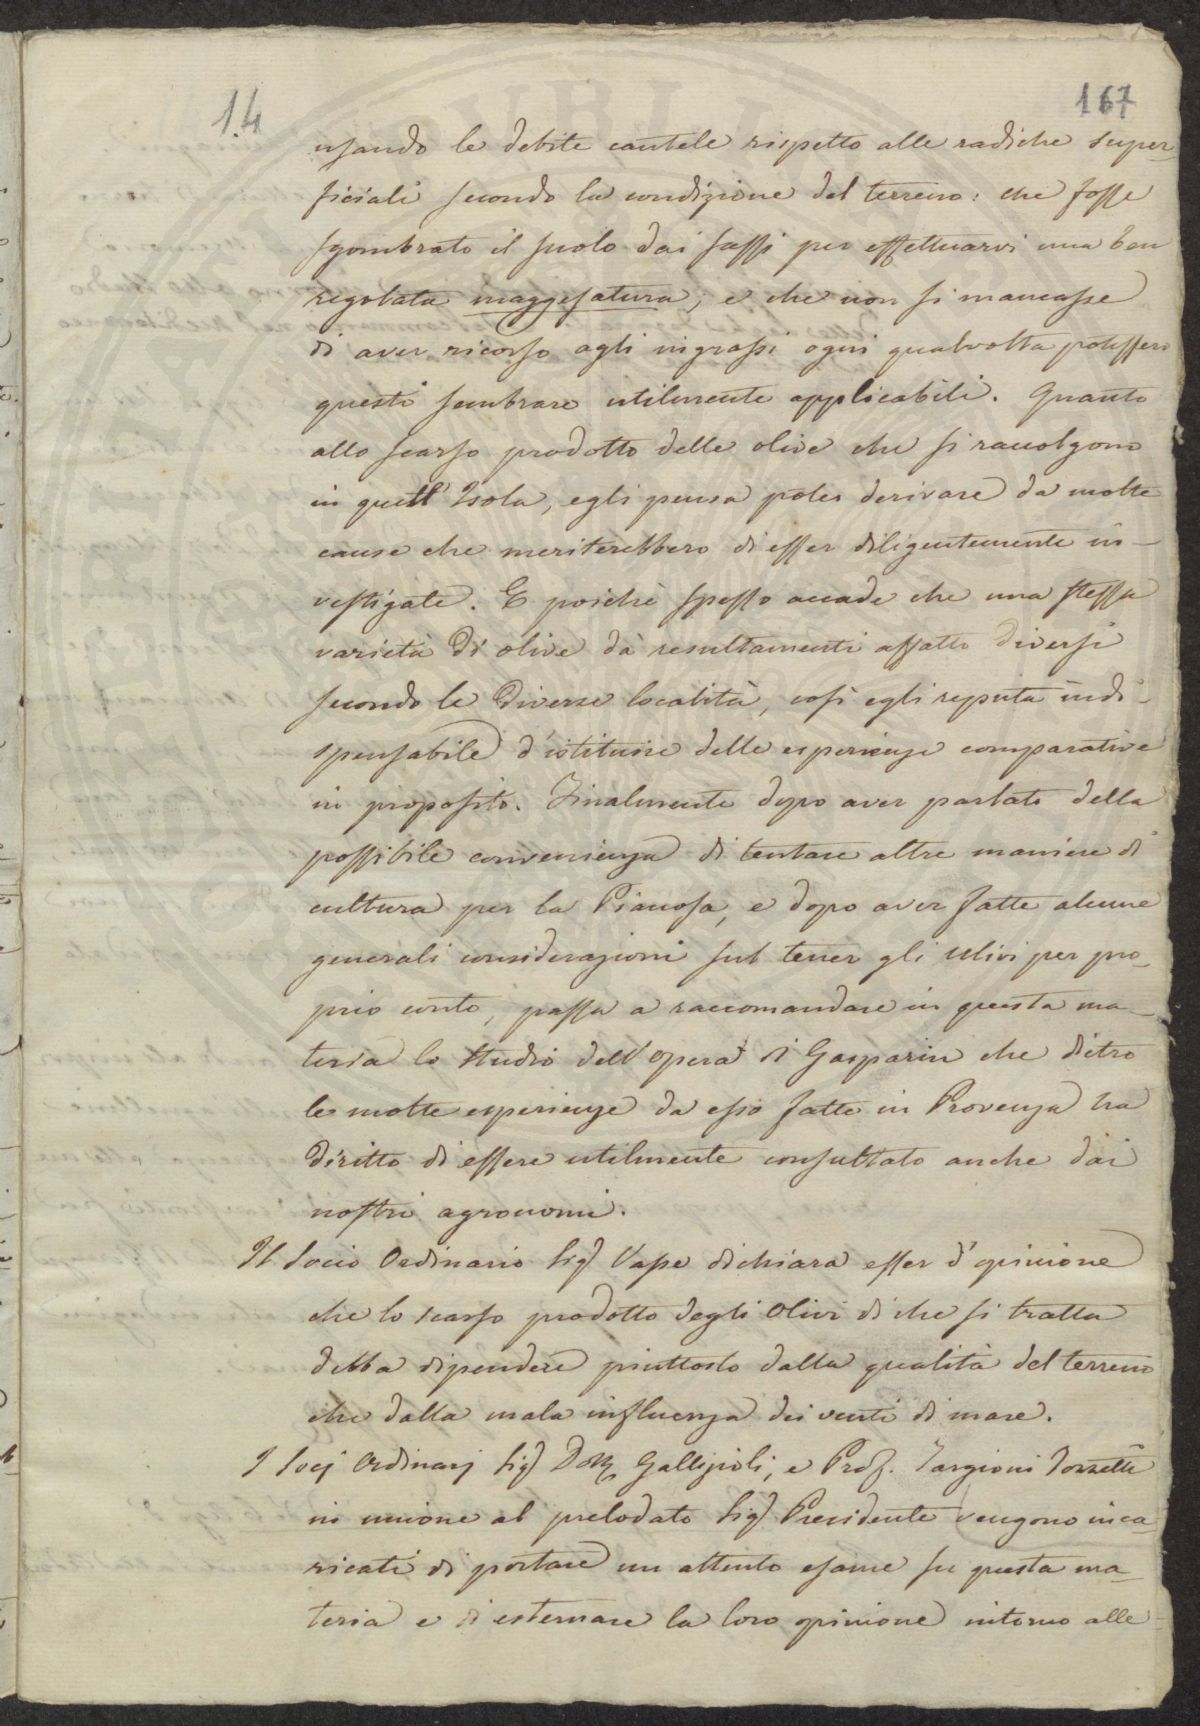 14
167
usando le debite cautele rispetto alle radiche super-
ficiali secondo la condizione del terreno: che fosse
sgombrato il suolo dai sassi per effettuarvi una ben
regolata maggesatura, e che non si mancasse
di aver ricorso agli ingrassi ogni qualvolta potessero
questi sembrare utilmente applicabili. Quanto
allo scarso prodotto delle olive che si raccolgono
in quell'Isola, egli pensa poter derivare da molte
cause che meriterebbero di esser diligentemente in-
vestigate. E poichè spesso accade che una stessa
varietà di olive dà resultamenti affatto diversi
secondo le diverse località, così egli reputa indi-
spensabile d'istituire delle esperienze comparative
in proposito. Finalmente dopo aver parlato della
possibile convenienza di tentare altre maniere di
cultura per la Pianosa, e dopo aver fatte alcune
generali considerazioni sul tener gli ulivi per pro-
prio conto, passa a raccomandare in questa ma-
teria lo studio dell'opera di Gasparin che dietro
le molte esperienze da esso fatte in Provenza ha
diritto di essere utilmente consultato anche dai
nostri agronomi.
Il Socio Ordinario Sig Vaspe dichiara esser d'opinione
che lo scarso prodotto degli Olivi di che si tratta
debba dipendere piuttosto dalla qualità del terreno
che dalla mala influenza dei venti di mare.
I Socj Ordinarj Sig Dott Gallizioli, e Prof. Targioni Tozzetti
in unione al prelodato Sig Presidente vengono inca-
ricati di portare un attento esame su questa ma-
teria e di esternare la loro opinione intorno alle